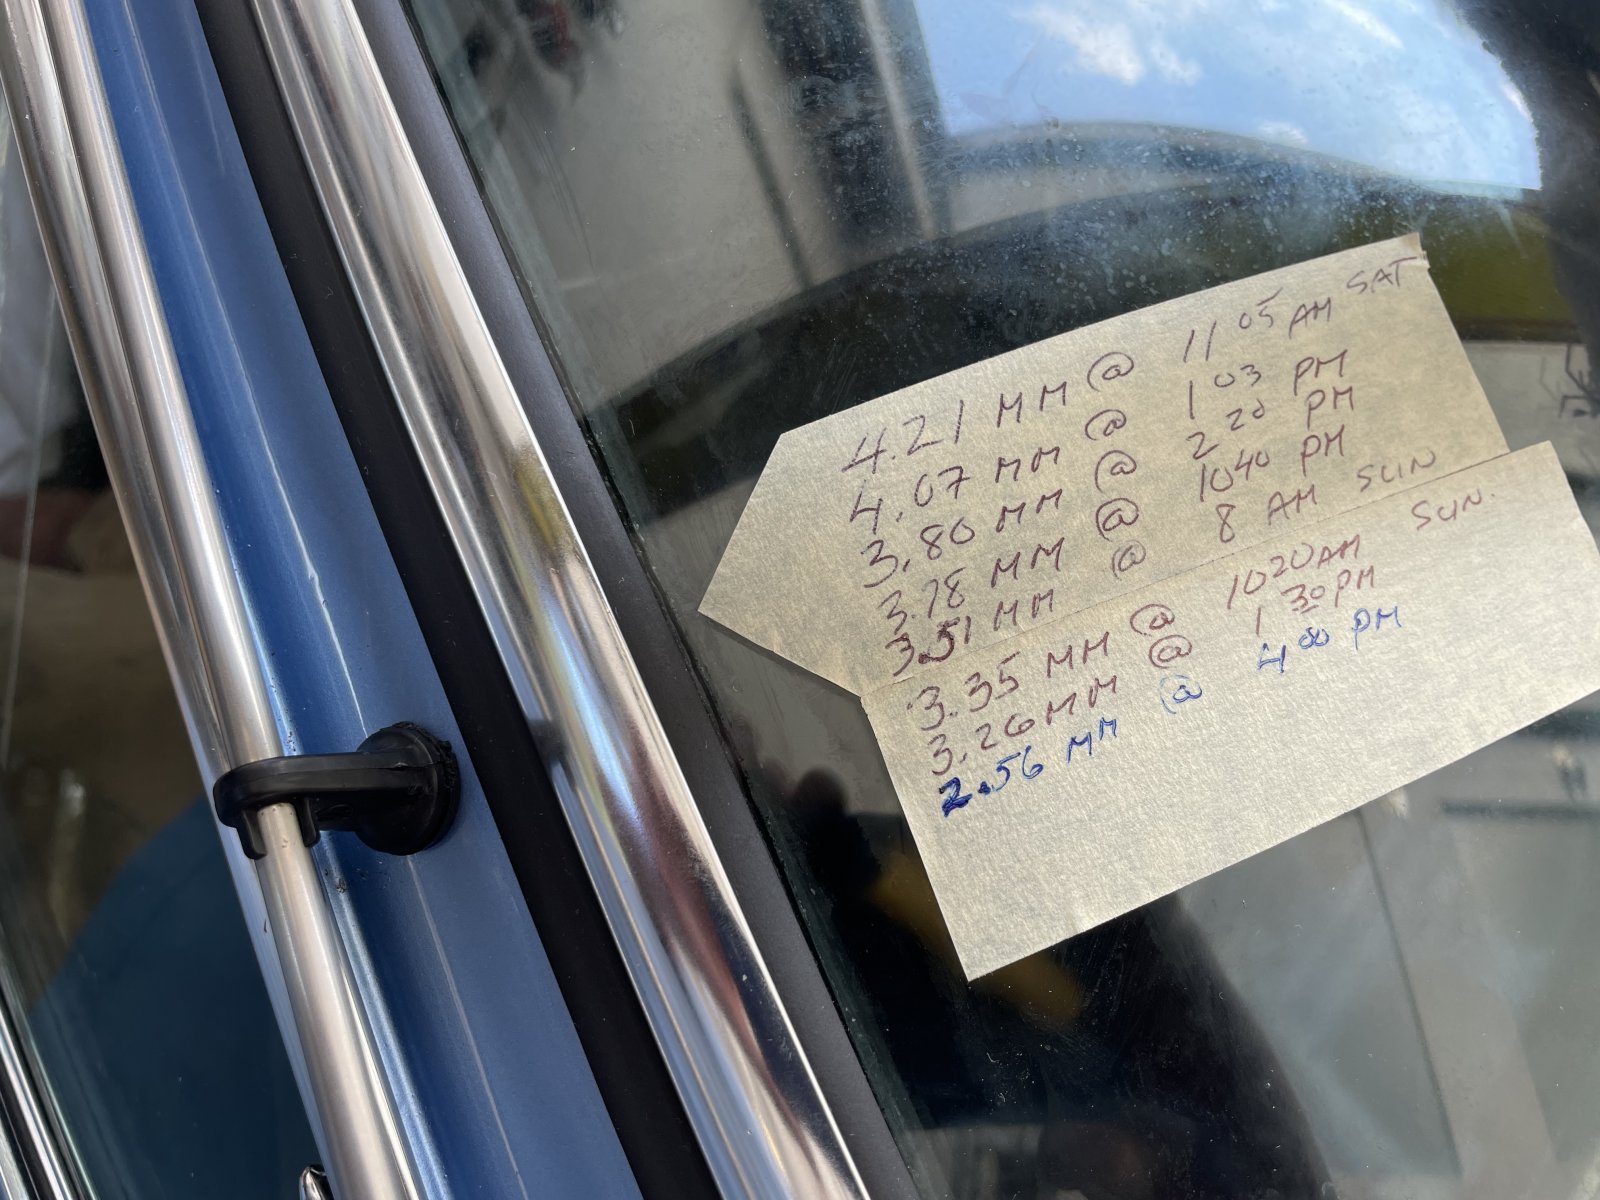 4.21 MM @ 11 05 AM SAT
4.07 MM @ 1 03 PM
3.80 MM @ 2 20 PM
3.78 MM @ 10 40 PM
3.51 MM @ 8 AM SUN
3.35 MM @ 10 20 AM SUN.
3.26 MM @ 1 30 PM
2.56 MM @ 4 00 PM